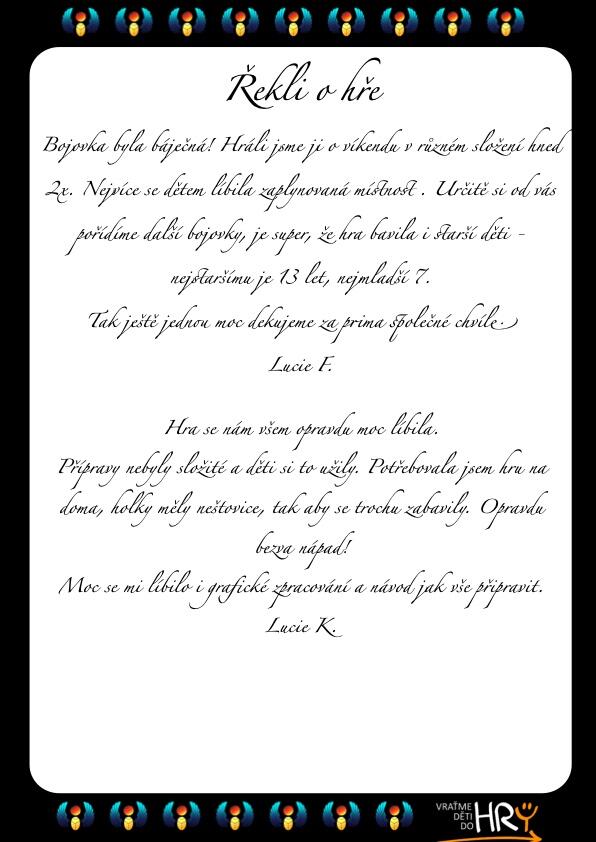 Řekli o hře
Bojovka byla báječná! Hráli jsme ji o víkendu v různém složení hned
2x. Nejvíce se dětem líbila zaplynovaná místnost . Určitě si od vás
pořídíme další bojovky, je super, že hra bavila i starší děti -
nejstaršímu je 13 let, nejmladší 7.
Tak ještě jednou moc dekujeme za prima společné chvíle.
Lucie F.
Hra se nám všem opravdu moc líbila.
Přípravy nebyly složité a děti si to užily. Potřebovala jsem hru na
doma, holky měly neštovice, tak aby se trochu zabavily. Opravdu
bezva nápad!
Moc se mi líbilo i grafické zpracování a návod jak vše připravit.
Lucie K.
VRAŤME
DĚTI
DO HRY